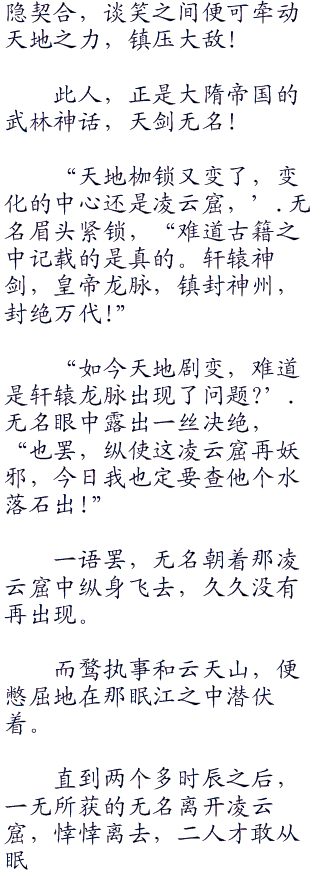 隐契合，谈笑之间便可牵动
天地之力，镇压大敌！
此人，正是大隋帝国的
武林神话，天剑无名！
“天地枷锁又变了，变
化的中心还是凌云窟，’.无
名眉头紧锁，“难道古籍之
中记载的是真的。轩辕神
剑，皇帝龙脉，镇封神州，
封绝万代！”
“如今天地剧变，难道
是轩辕龙脉出现了问题？’.
无名眼中露出一丝决绝，
“也罢，纵使这凌云窟再妖
邪，今日我也定要查他个水
落石出！”
一语罢，无名朝着那凌
云窟中纵身飞去，久久没有
再出现。
而鹜执事和云天山，便
憋屈地在那眠江之中潜伏
着。
直到两个多时辰之后，
一无所获的无名离开凌云
窟，悻悻离去，二人才敢从
眠